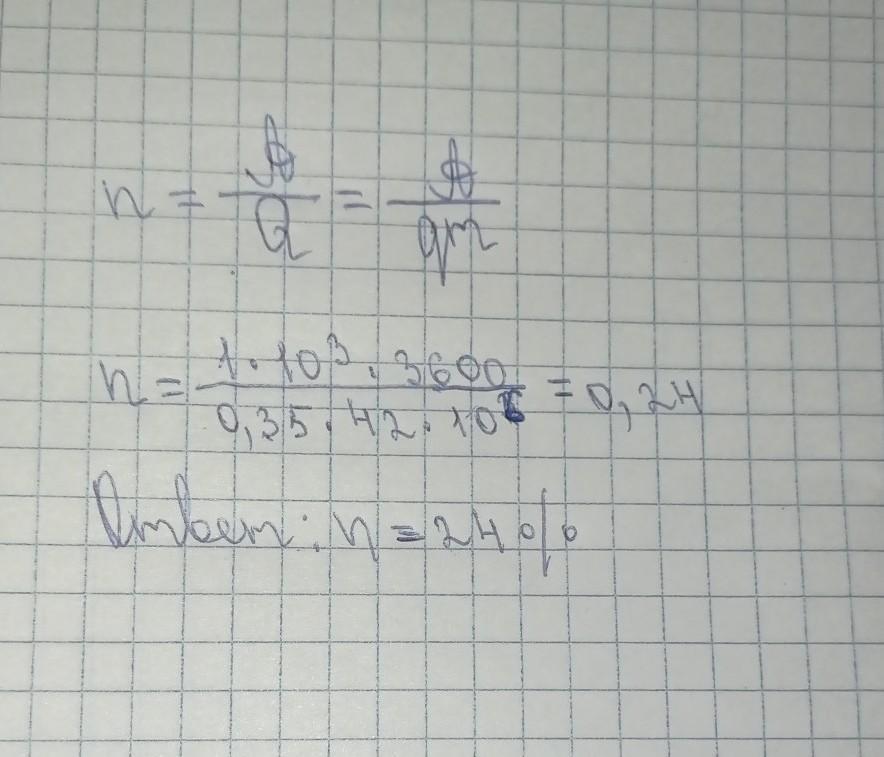 n = A/Q = A/qm
n = 1·10³·3600 / 0,35·42·10⁶ = 0,24
Ответ: n = 24%